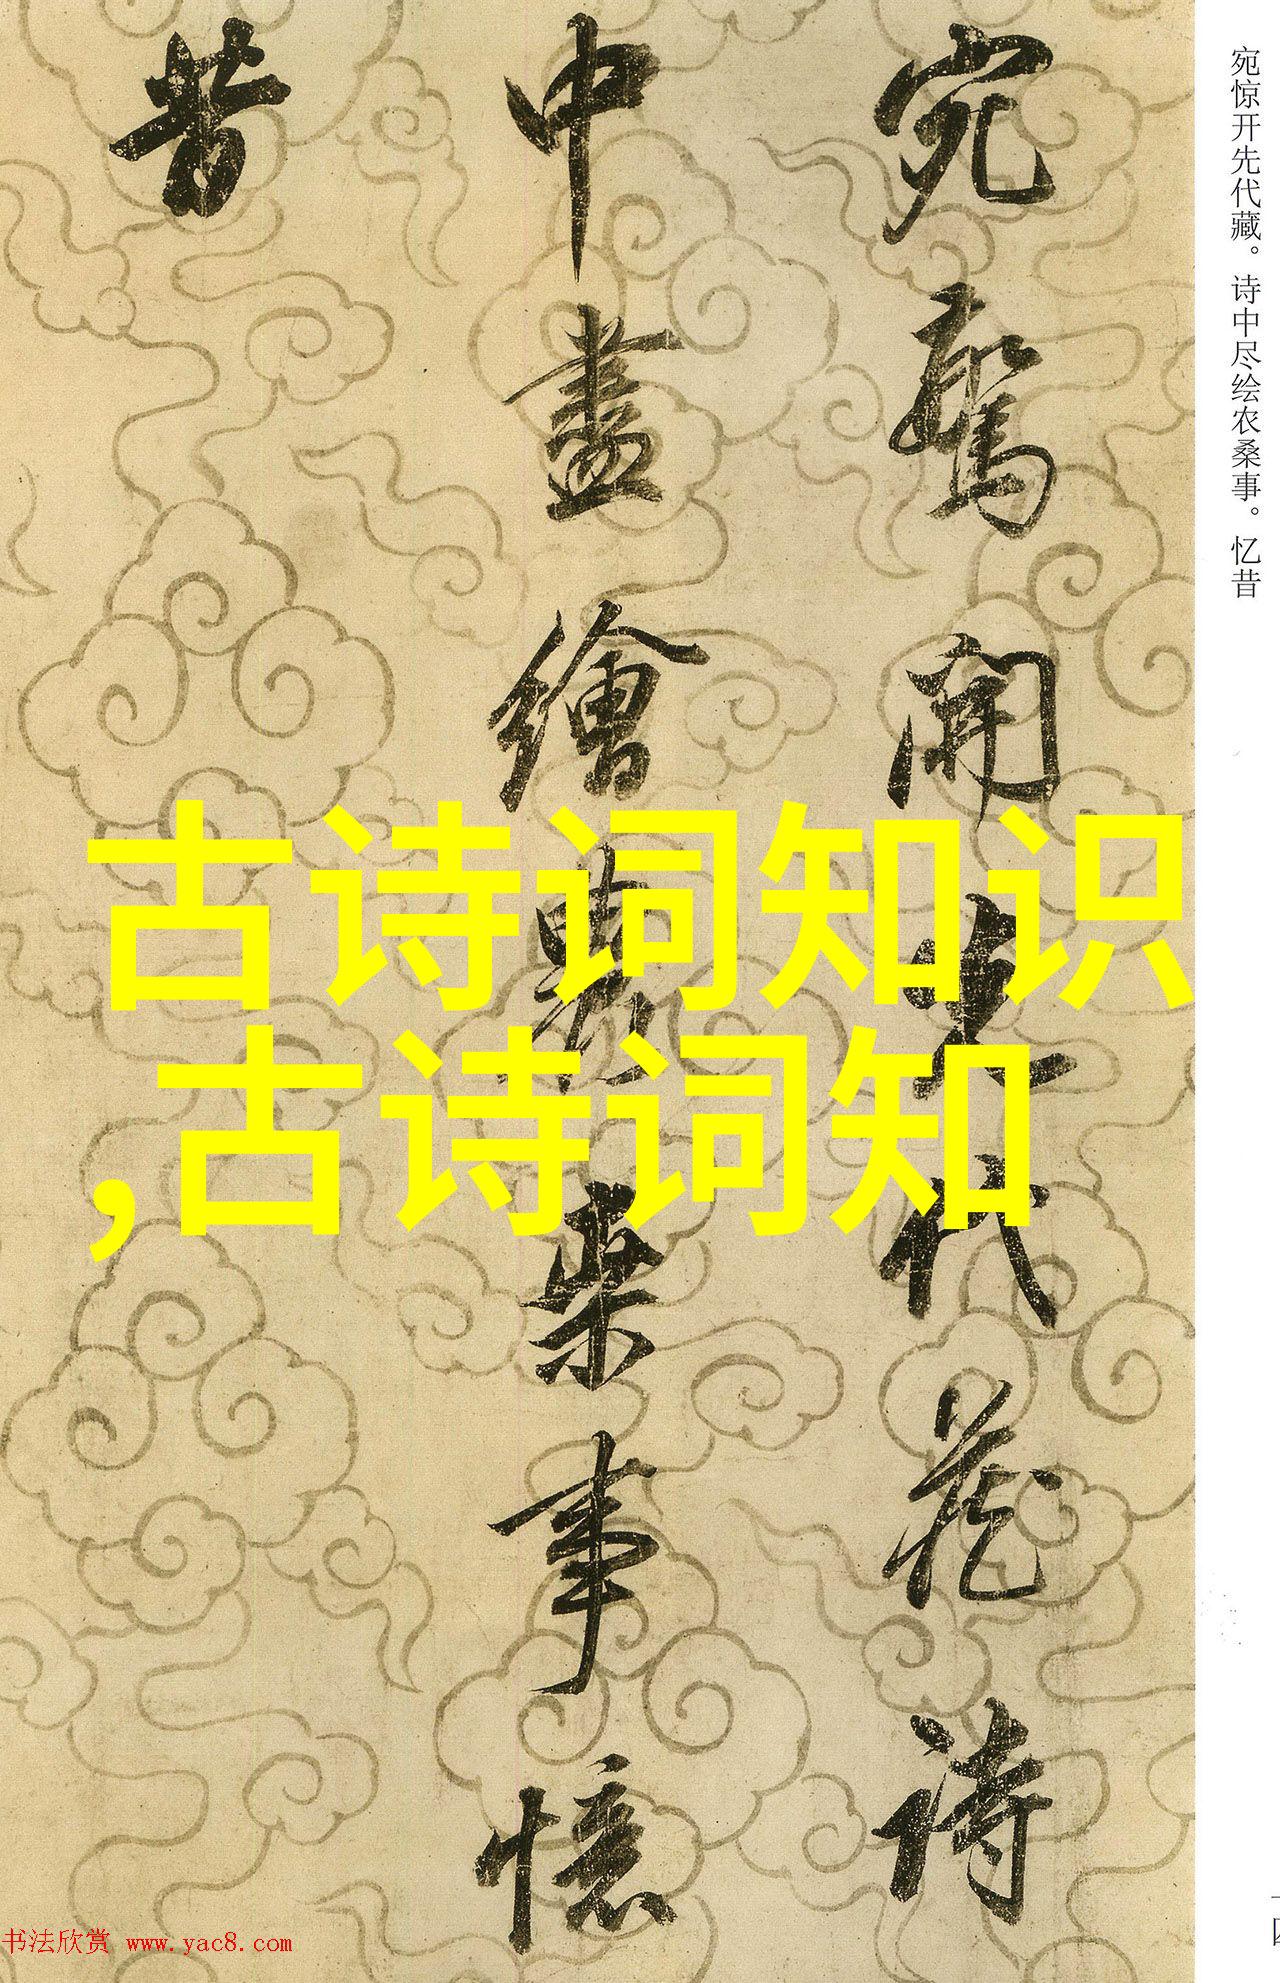 宛惊开先代藏。诗中尽绘农桑事。忆昔
宛驚開先代藏詩
中盡繪農桑事憶
昔
古诗词知识
,古诗词知
书法欣赏 www.yac8.com